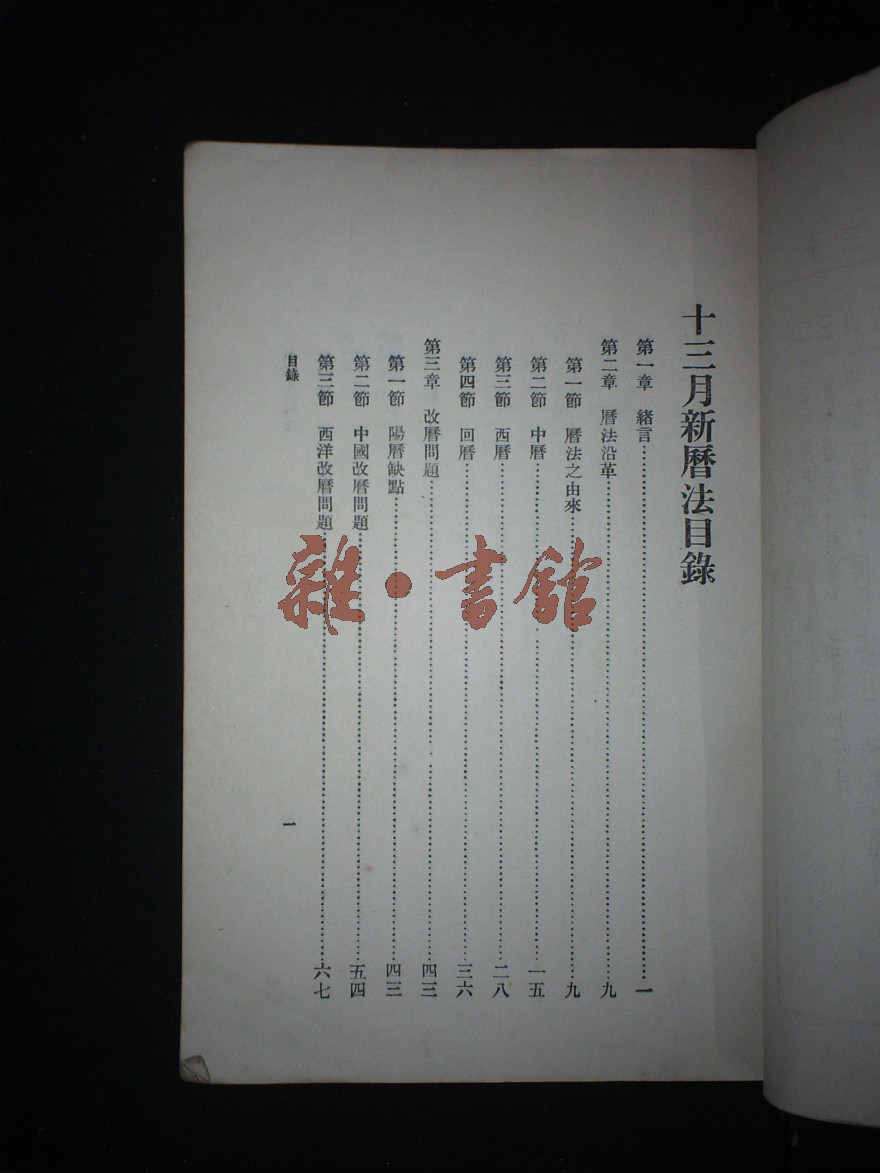 十三月新曆法目錄
第一章 緒言……一
第二章 曆法沿革……九
第一節 曆法之由來……九
第二節 中曆……一五
第三節 西曆……二八
第四節 回曆……三六
第三章 改曆問題……四三
第一節 陽曆缺點……四三
第二節 中國改曆問題……五四
第三節 西洋改曆問題……六七
目錄
一
雜·書館